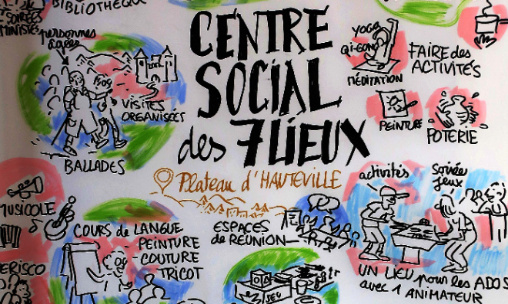 BIBLIOTHÈQUE
de SOIRÉES
personnes
âgées
VISITES
ORGANISÉES
BALLADES
CENTRE
SOCIAL
des 7 LIEUX
Plateau d'HAUTEVILLE
YOGA
QI-GONG
MÉDITATION
FAIRE des
ACTIVITÉS
PEINTURE
POTERIE
MUSICOLE
COURS de LANGUE
PEINTURE
COUTURE
TRICOT
ESPACES
de RÉUNION
activités
Soirée
jeux
UN LIEU pour les ADOS
avec 1 ANIMATEUR